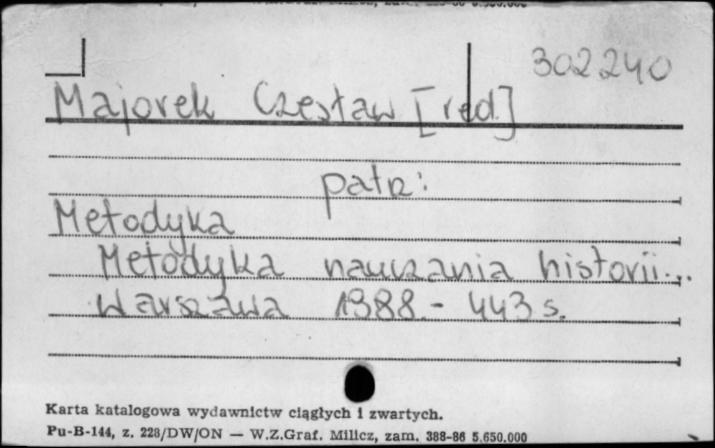 302240
Majorek Czesław [red.]
patrz:
Metodyka
Metodyka nauczania historii...
Warszawa 1988.- 443 s.
Karta katalogowa wydawnictw ciągłych i zwartych.
Pu-B-144, z. 228/DW/ON — W.Z.Graf. Milicz, zam. 388-86 5.650.000